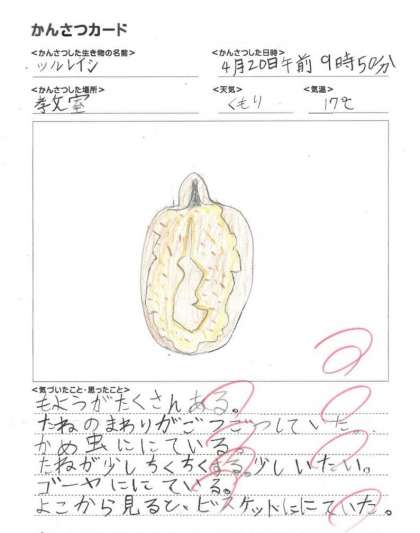 かんさつカード
<かんさつした生き物の名前> <かんさつした日時>
ツルレイシ 4月20日午前9時50分
<かんさつした場所> <天気> <気温>
教室 くもり 17℃
<気づいたこと・思ったこと>
もようがたくさんある。
たねのまわりがごつごつしていた。
かめ虫ににている。
たねが少しちくちくする。少しいたい。
ゴーヤににている。
よこから見ると、ビスケットににていた。